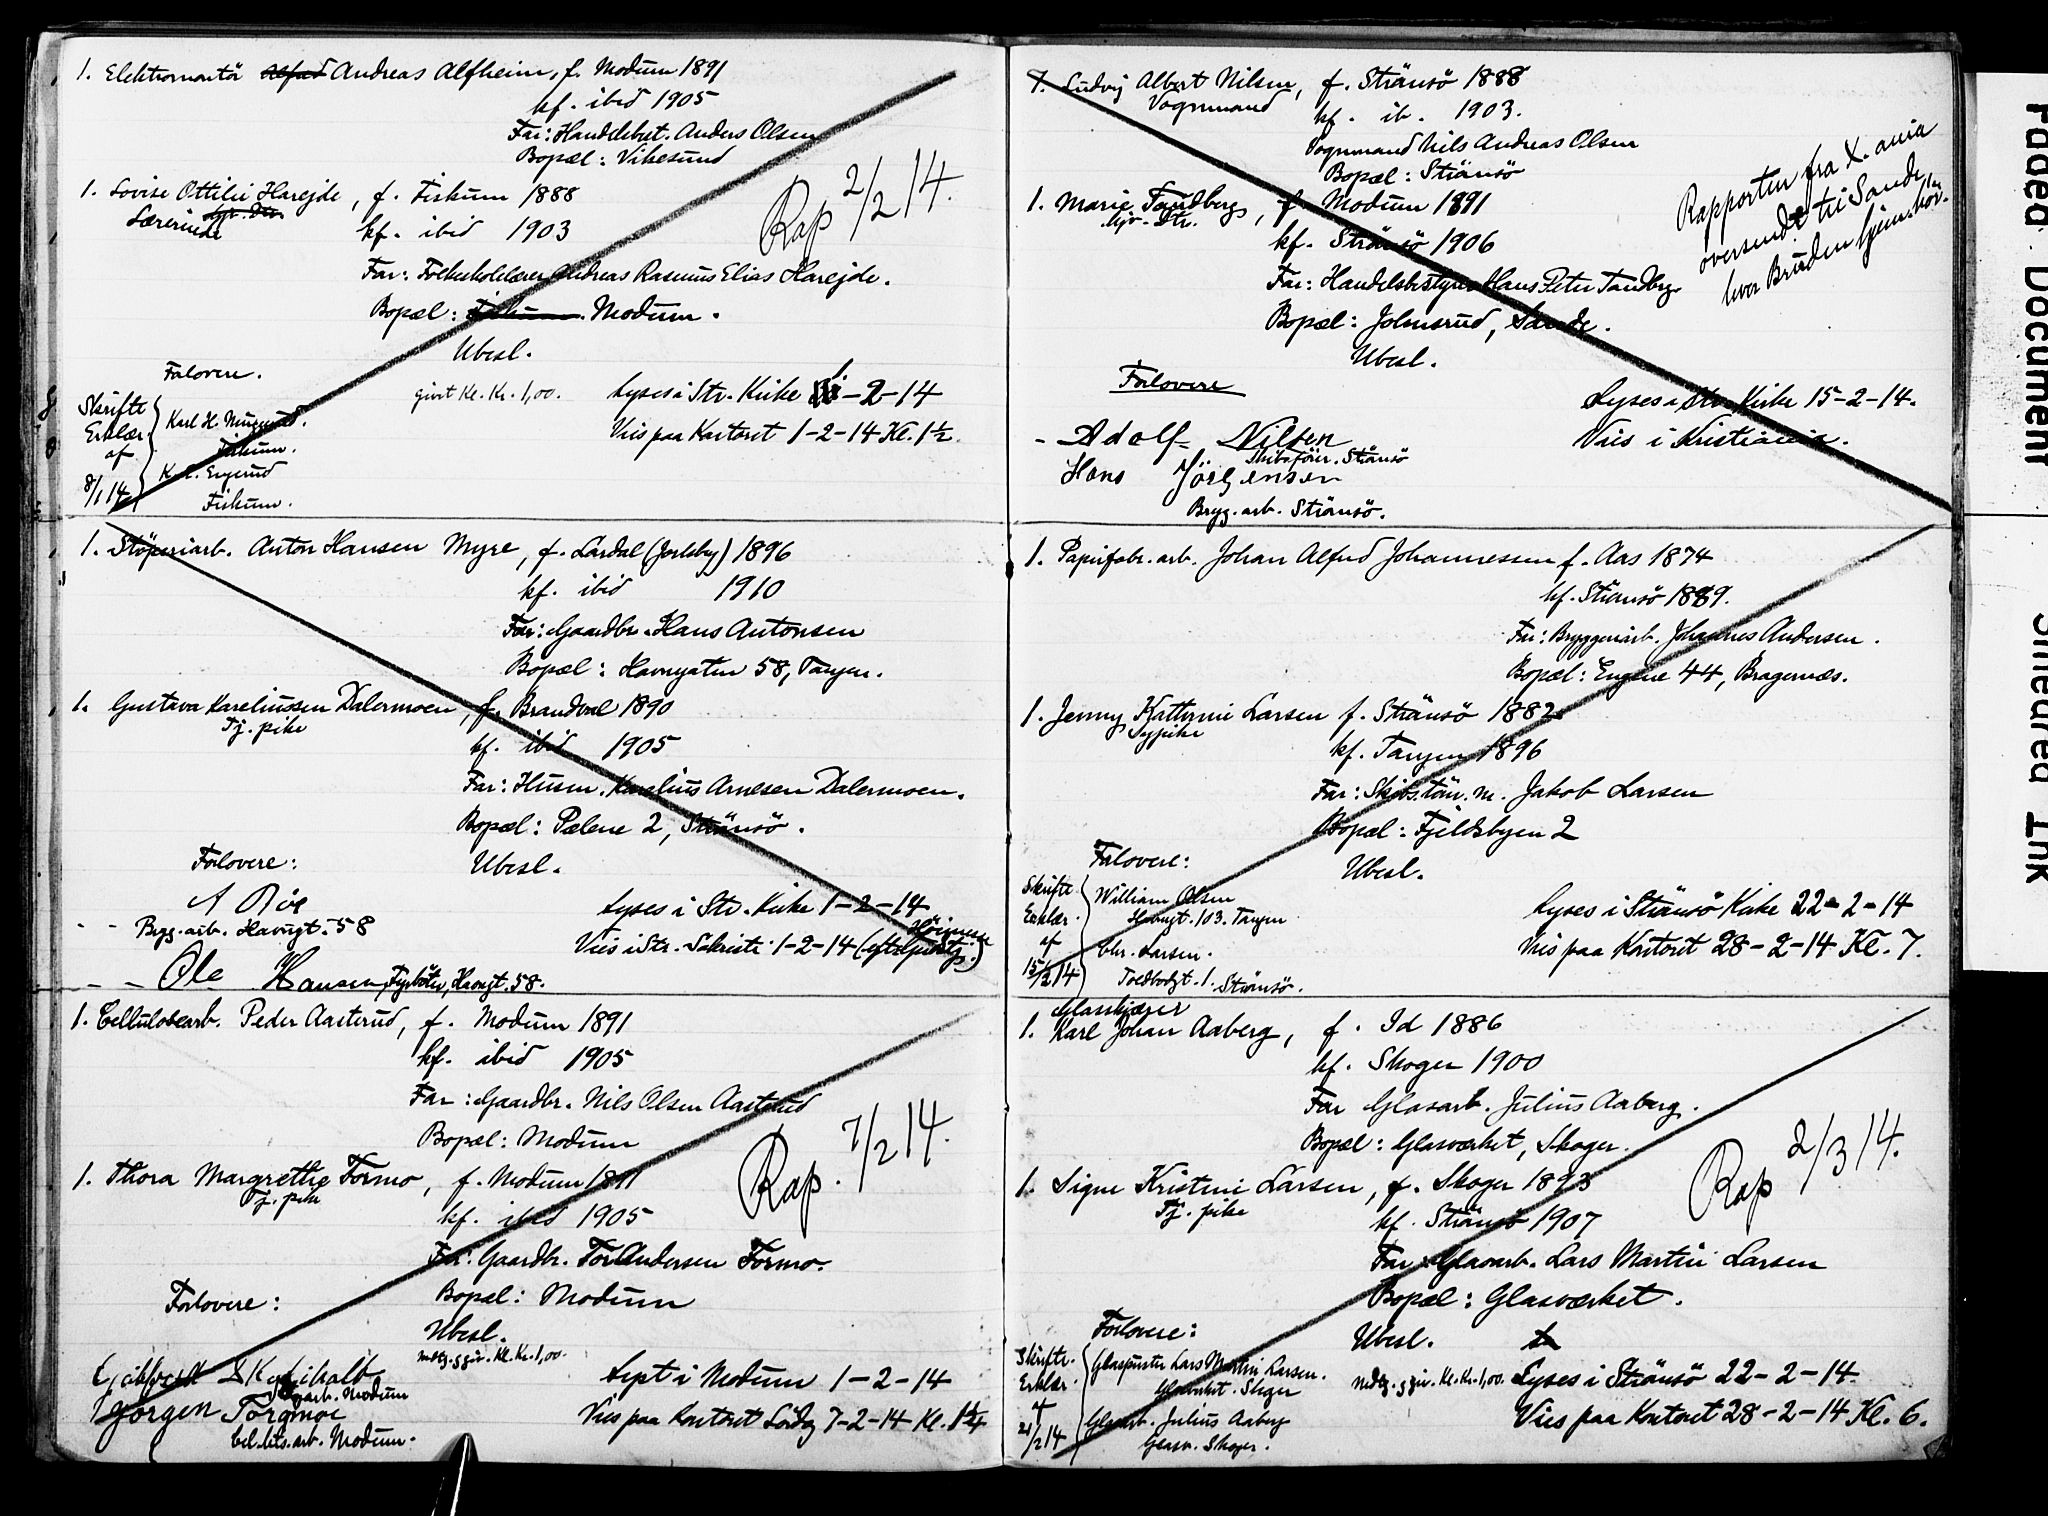 1. Elektromontör Alfred Andreas Alfheim, f. Modum 1891
kf. ibid 1905
Far: Handelsbest. Anders Olsen
Bopæl: Vikesund
1. Lovise Ottilie Harejde, f. Fiskum 1888
Lærerinde
kf. ibid 1903
Rap 2/2 14.
Far: Folkeskolelærer Andreas Rasmus Elias Harejde.
Bopæl: Fiskum. Modum.
Ubesl.
Forlovere.
Skriftl. Erklær. af 8/1 14
Karl H.
Fiskum.
K. L. Engerud
Fiskum.
givet Kl. Kr. 1,00.
Lyses i Str. Kirke -2-14
Vies paa Kontoret 1-2-14 Kl. 1½.
1. Stöperiarb. Anton Hansen Myre, f. Lardal (Jarlsby) 1896
kf. ibid 1910
Far: Gaardbr. Hans Antonsen
Bopæl: Havnegaten 58, Tangen.
1. Gustava Kareliussen Dalermoen, f. Brandval 1890
Tj. pike
kf. ibid 1905
Far: Husm. Karelius Arnesen Dalermoen.
Bopæl: Pælene 2, Strömsö.
Forlovere:
Ubesl.
A Röe
Bryg. arb. Havngt. 58
Ole Hansen, Fyrböter, Havngt. 58.
Lyses i Str. Kirke 1-2-14
Vies i Str. Sakristi 1-2-14 (efter Höimesse Gudstj.)
1. Cellulosearb. Peder Aasterud, f. Modum 1891
kf. ibid 1905
Far: Gaardbr. Nils Olsen Aasterud
Bopæl: Modum
Rap. 7/2 14.
1. Thora Margrethe Formo, f. Modum 18
Tj. pike
kf. ibid 1905
Far: Gaardbr. Tor Andersen Formo.
Bopæl: Modum
Forlovere:
Ubesl.
arb. Modum
Jörgen Torgmoe
Cel.lts. arb. Modum.
medtg. g giv. Kl. Kr. 1,00.
Lyst i Modum 1-2-14
Vies paa Kontoret Lördg 7-2-14 Kl. 1¼
1. Ludvig Albert Nilsen, f. Strömsö 1888
Vognmand
kf. ib. 1903.
Vognmand Nils Andreas Olsen
Bopæl: Strömsö
1. Marie Tandberg, f. Modum 1891
Hjv. Dtr.
kf. Strömsö 1906
Far: Handelsbestyrer Hans Peter Tandberg
Bopæl: Johnsrud, Sande.
Ubesl.
Rapporten fra X.ania
oversendt til Sande,
hvor Bruden hjemhör.
Forlovere
- Adolf Nilsen
Skibsförer. Strömsö
Hans Jörgensen
Bryg. arb. Strömsö.
Lyses i Str. Kirke 15-2-14.
Vies i Kristiania.
1. Papirfabr. arb. Johan Alfred Johannessen f. Aas 1874
kf. Strömsö 1889.
Far: Bryggeriarb. Johannes Andersen.
Bopæl: Engene 44, Bragernæs.
1. Jenny Kathrine Larsen f. Strömsö 1882
Sypike
kf. Tangen 1896
Far: Skibstöm. m. Jakob Larsen
Bopæl: Fjeldsbyen 2
Forlovere:
Ubesl.
Skriftl. Erklær. af 15/2 14
William Olsen
Havngt. 103. Tangen
Chr. Larsen.
Toldbodgt. 1. Strömsö.
Lyses i Strömsö Kirke 22-2-14
Vies paa Kontoret 28-2-14 Kl. 7.
Glasskjærer
1. Karl Johan Aaberg, f. Id 1886
kf. Skoger 1900
Far Glasarb. Julius Aaberg.
Bopæl: Glasværket, Skoger.
1. Signe Kristine Larsen, f. Skoger 1893
Tj. pike
kf. Strömsö 1907
Rap 2/3 14.
Far Glasarb. Lars Martin Larsen
Bopæl: Glasværket.
Forlovere:
Ubesl.
Skriftl. Erklær. af 21/2 14
Glaspuster Lars Martin Larsen.
Glasværket. Skoger
Glasarb. Julius Aaberg
Glasv. Skoger.
medtg. g giv. Kl. Kr. 1,00.
Lyses i Strömsö 22-2-14
Vies paa Kontoret 28-2-14 Kl. 6.
Faded Document
Smeared Ink